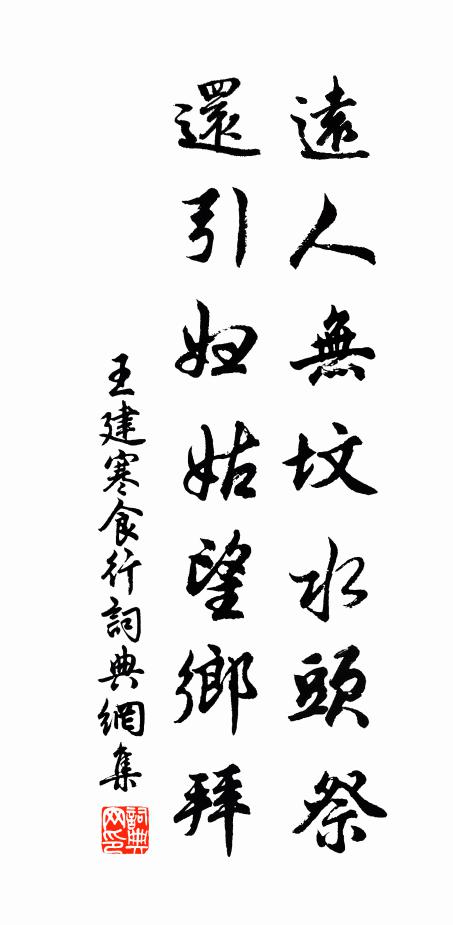 遠人無墳水頭祭
還引妇姑望鄉拜
王建寒食行詞典網集
詞典网印